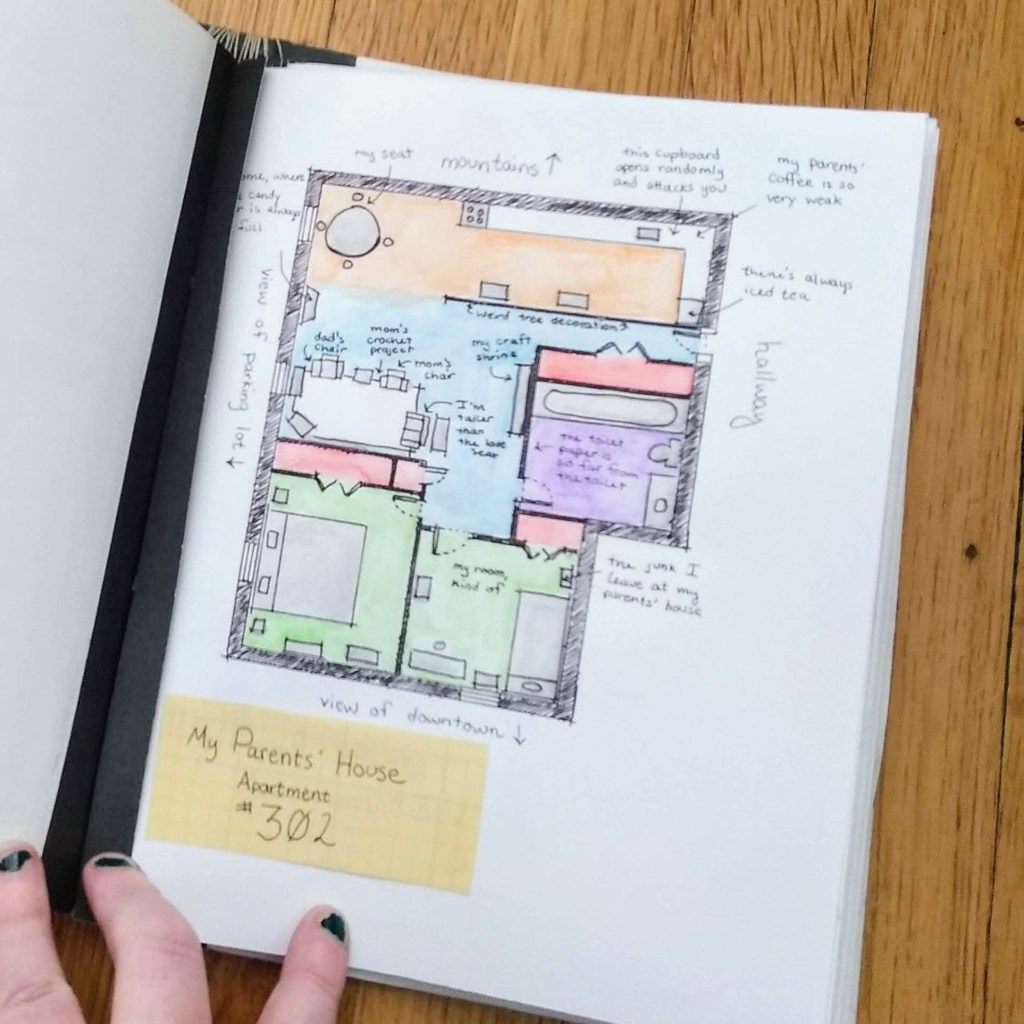 my seat
mountains ↑
this cupboard
opens randomly
and attacks you
my parents'
coffee is so
very weak
where
candy
is always
full
there's always
iced tea
view of parking lot ↓
hallway
weird tree decorations
dad's
chair
mom's
crochet
project
mom's
chair
my craft
shrine
I'm
taller
than
the love
seat
the toilet
paper is
so far from
the toilet
my room,
kind of
the junk I
leave at my
parents' house
view of downtown ↓
My Parents' House
Apartment
#302